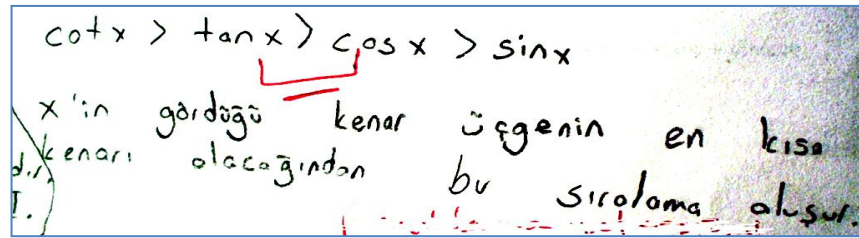 cotx > tanx > cosx > sinx
x'in gördüğü kenar üçgenin en kısa
kenarı olacağından bu sıralama oluşur.